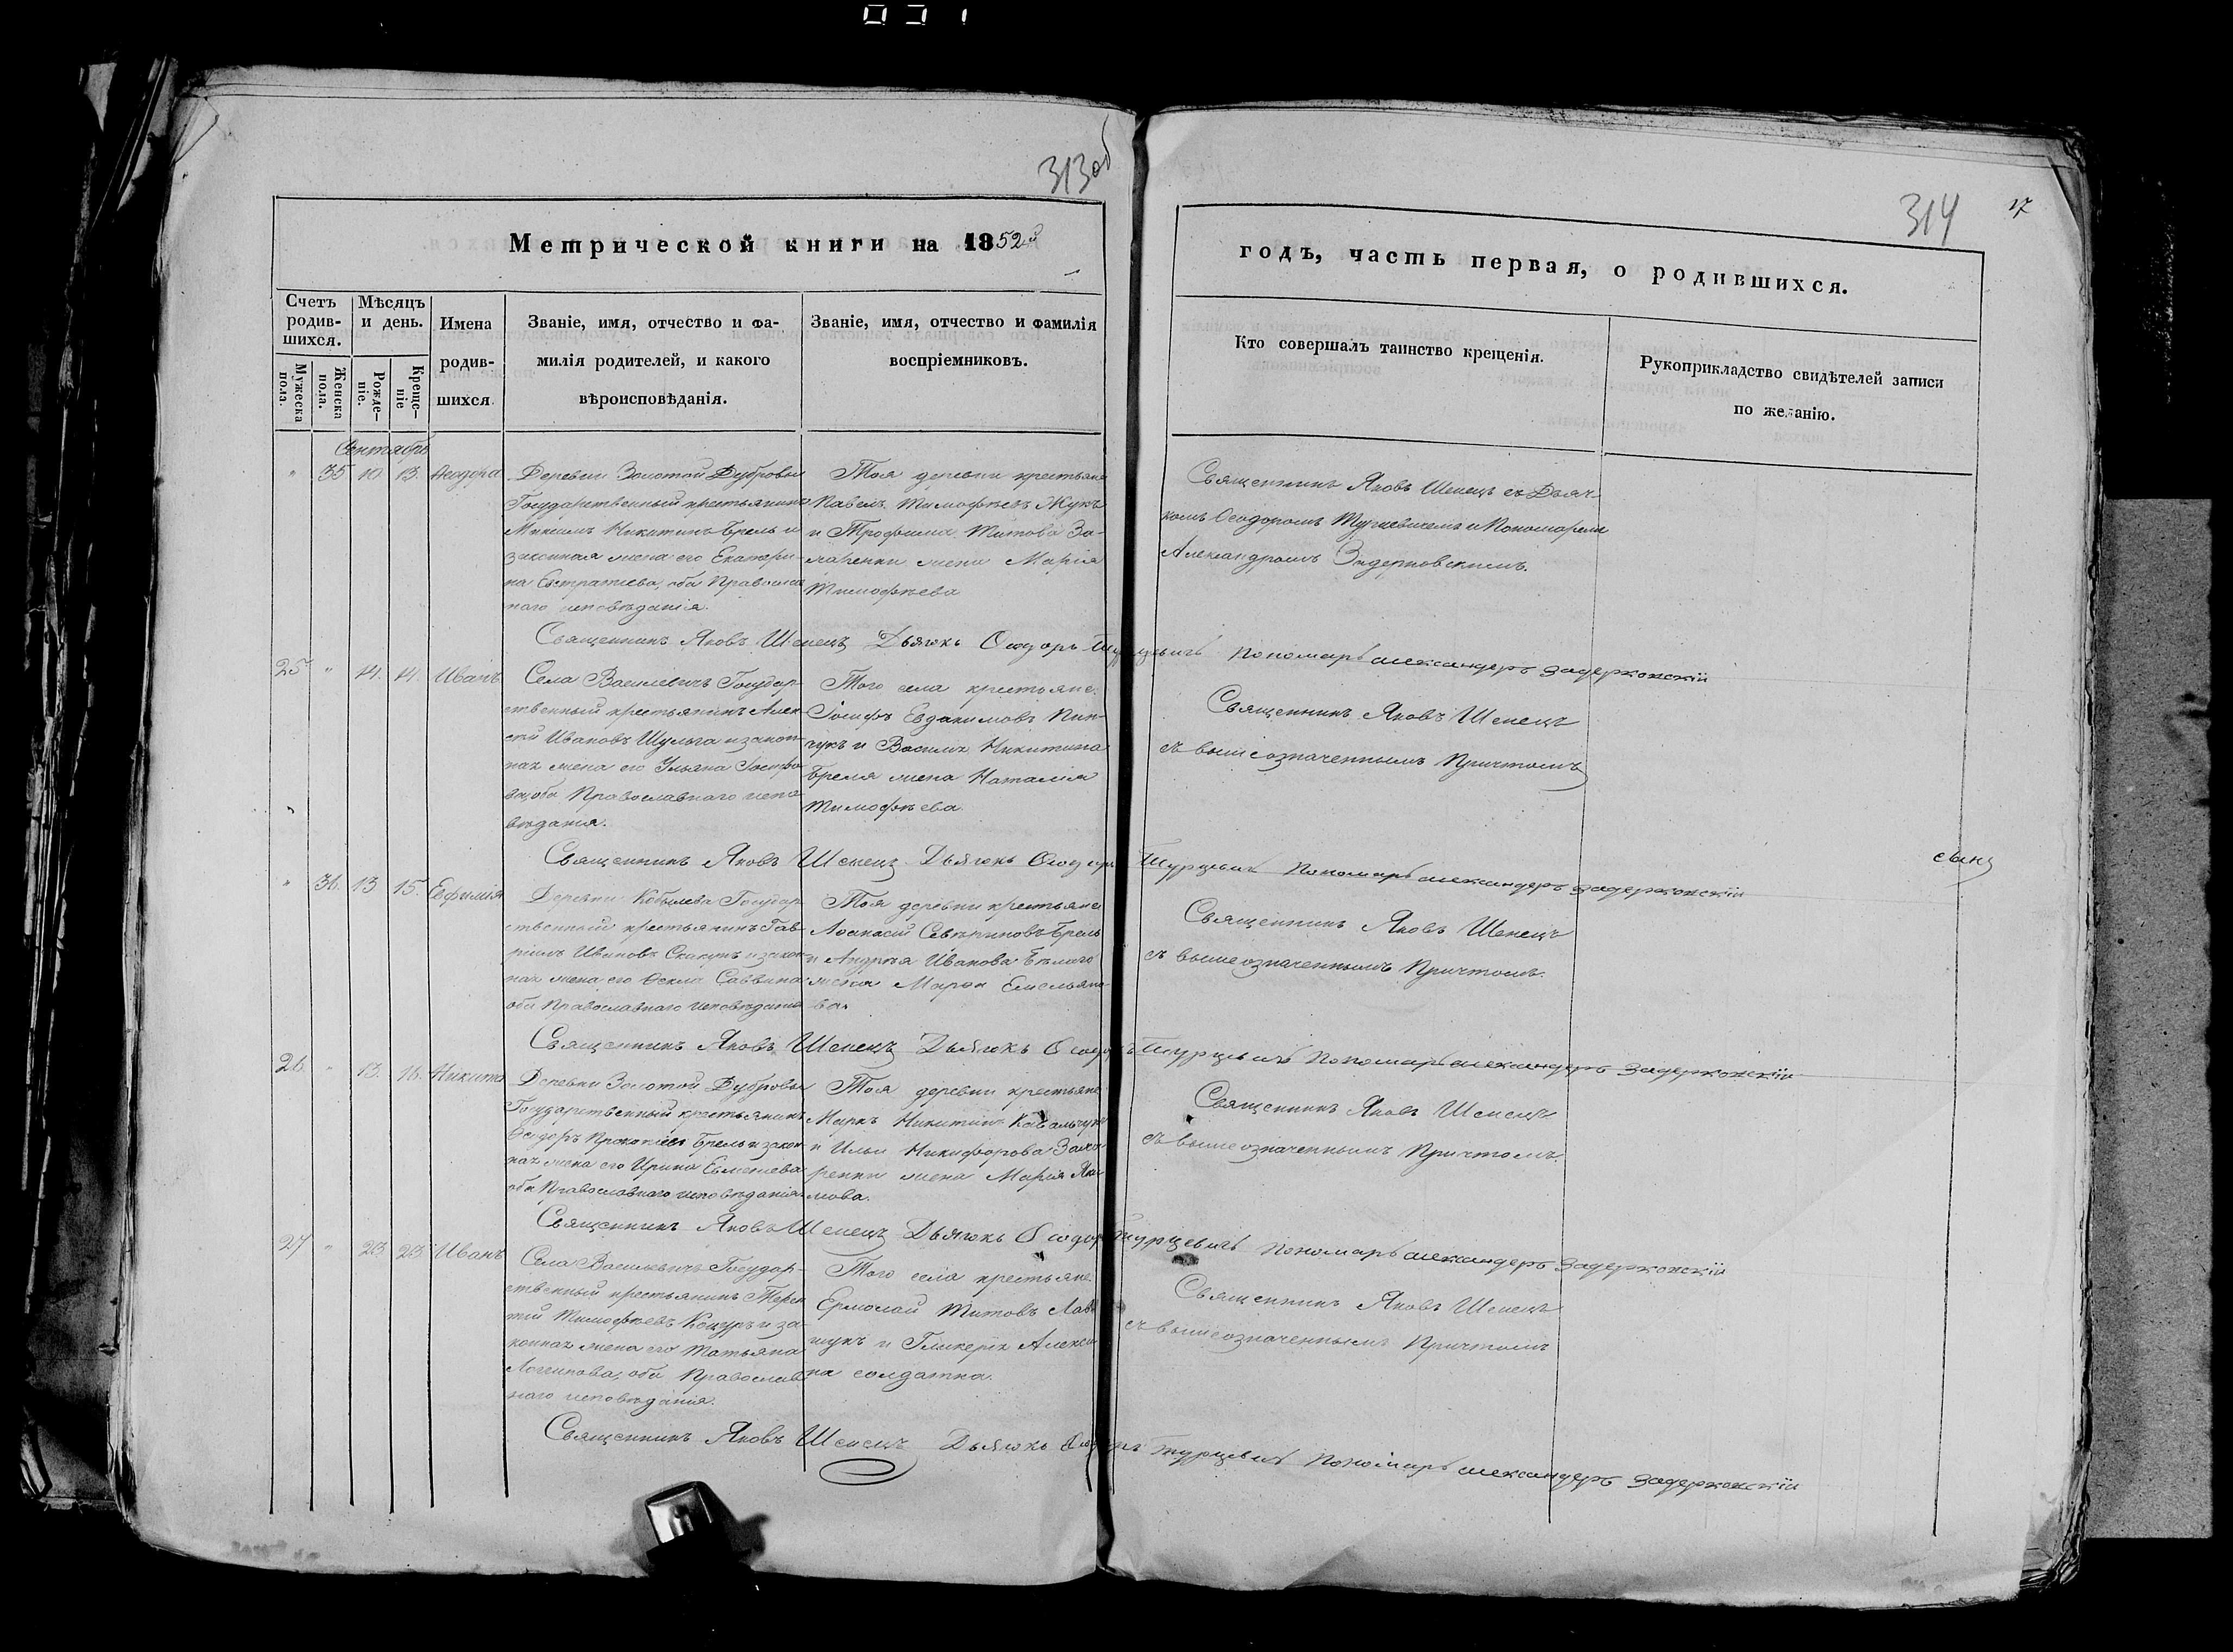 313 об
314
17
Метрической книги на 1852й
годъ, часть первая, о родившихся.
Счетъ родив-шихся.
Мужеска пола.
Женска пола.
Мѣсяцъ и день.
Рожде-ніе.
Креще-ніе
Имена
родив-
шихся.
Званіе, имя, отчество и фа-
милія родителей, и какого
вѣроисповѣданія.
Званіе, имя, отчество и фамилія
воспріемниковъ.
Кто совершалъ таинство крещенія.
Рукоприкладство свидѣтелей записи
по желанію.
Сентябрь
" 35 10 13. Ѳеодора
Деревни Золотой Дубровы
Государственный крестьянинъ
Максимъ Никитинъ Брель и
законная жена его Екатери-
на Евстратиева, оба Православ
наго исповѣданія.
Тоя деревни крестьяне
Павелъ Тимофѣевъ Жукъ
и Трофима Титова За-
жена Марія
Тимофѣева
Священникъ Яковъ Шенецъ съ Дьяч-
комъ Ѳеодоромъ Турцевичемъ и Пономаремъ
Александромъ Задерковскимъ.
Священникъ Яковъ Шенецъ Дьячокъ Ѳеодоръ Турцевичъ Пономарь александеръ Задерковскій
25 " 14. 14. Иванъ
Села Василевичъ Государ-
ственный крестьянинъ Алек-
сѣй Ивановъ Шульга и закон-
ная жена его Ульяна
оба Православнаго испо
вѣданія.
Того села крестьяне
Іосифъ Евдокимовъ Пин-
чукъ и Василя Никитина
Бреля жена Наталія
Тимофѣева
Священникъ Яковъ Шенецъ
съ вышеозначеннымъ Причтомъ
Священникъ Яковъ Шенецъ Дьячокъ Ѳеодоръ Турцевичъ Пономарь александеръ Задерковскій
" 36. 13 15. Евфимія
Деревни Кобылева Государ
ственный крестьянинъ Гав-
ріилъ Ивановъ и закон
ная жена его Ѳекла Саввина
оба Православнаго исповѣданія
Тоя деревни крестьяне
Аѳанасій Севериновъ Брель
и Андрея Иванова Бѣлаго
жена Марѳа Емельяно
ва.
Священникъ Яковъ Шенецъ
съ вышеозначеннымъ Причтомъ.
Священникъ Яковъ Шенецъ Дьячокъ Ѳеодоръ Турцевичъ Пономарь александеръ Задерковскій
26. " 13. 16. Никита
Деревни Золотой Дубровы
Государственный крестьянинъ
Ѳедоръ Прокопіевъ Брель и закон
ная жена его Ирина Евменіева
оба Православнаго исповѣданія.
Тоя деревни крестьяне
Маркъ Никитинъ Ковальчукъ
и Ильи Никифорова
жена Марія Яки
мова.
Священникъ Яковъ Шенецъ
съ вышеозначеннымъ Причтомъ.
Священникъ Яковъ Шенецъ Дьячокъ Ѳеодоръ Турцевичъ Пономарь александеръ Задерковскій
27 " 23 23 Иванъ
Села Василевичъ Государ-
ственный крестьянинъ Терен
тій Тимофѣевъ Коцуръ и за-
конная жена его Татьяна
Логинова, оба Православ
наго исповѣданія.
Того села крестьяне
Ермолай Титовъ
и Гликерія Алекси
на солдатка.
Священникъ Яковъ Шенецъ
съ вышеозначеннымъ Причтомъ
Священникъ Яковъ Шенецъ Дьячокъ Ѳеодоръ Турцевичъ Пономарь александеръ Задерковскій